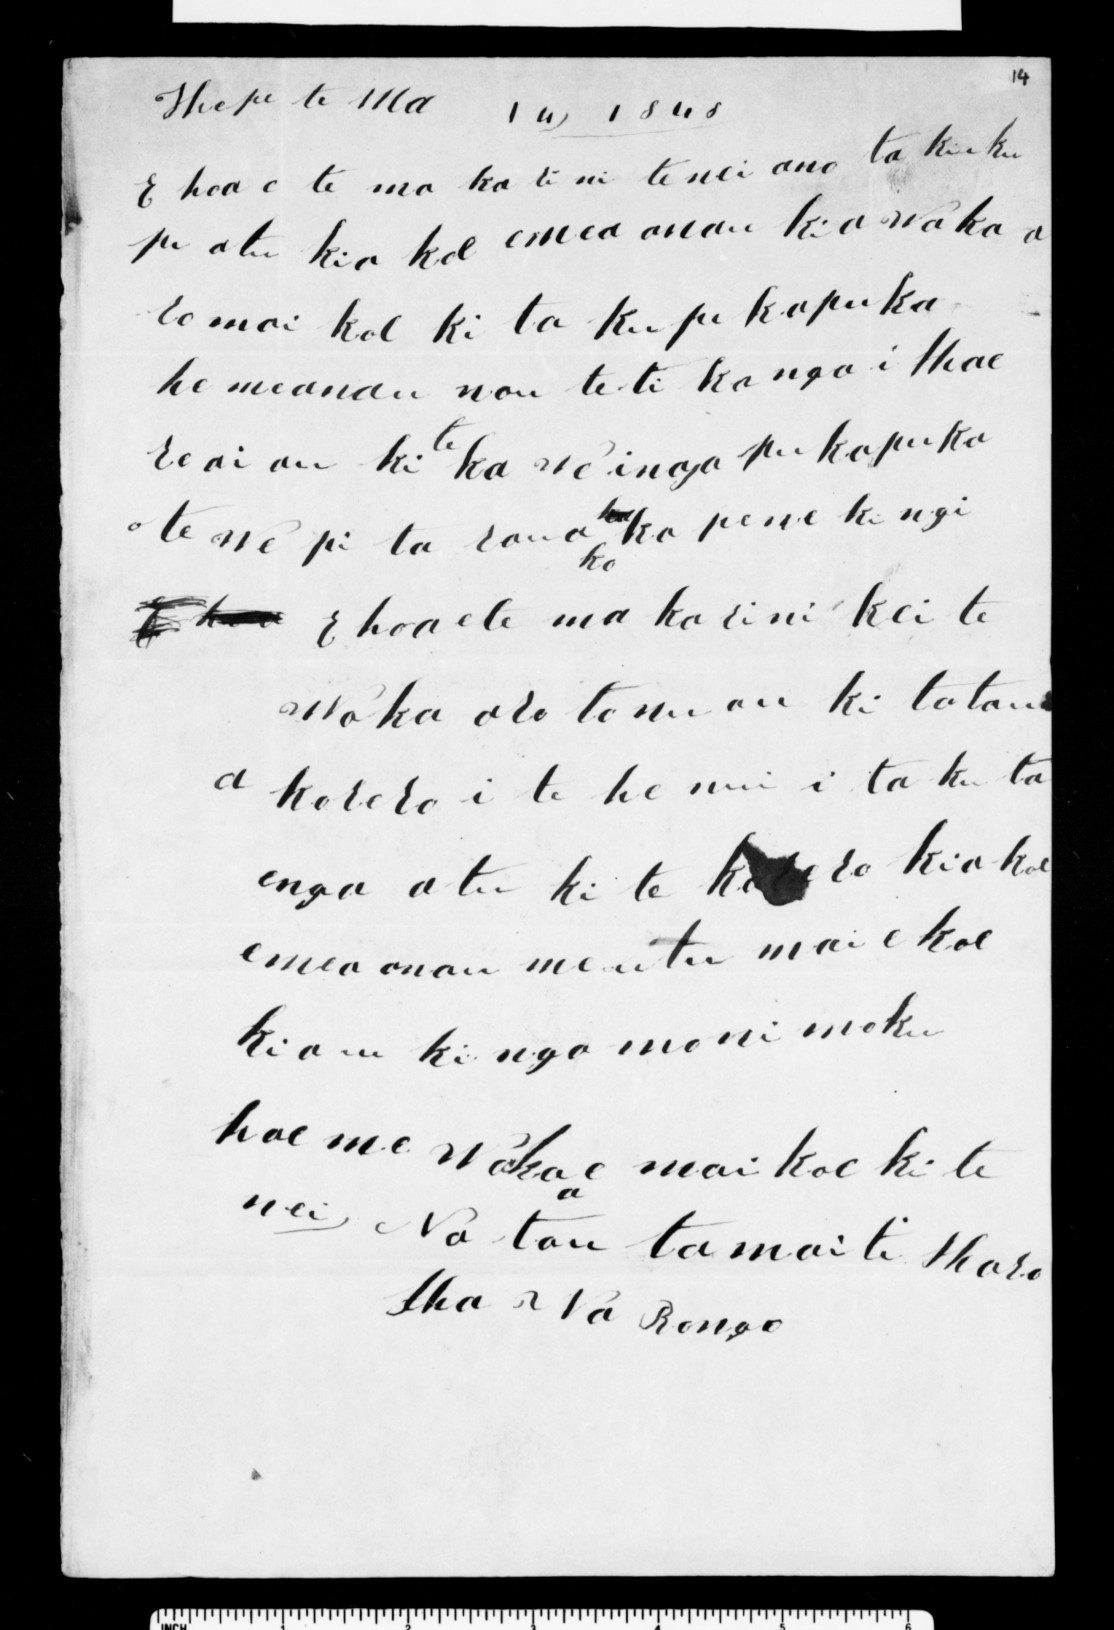 14
Hepe te Ma 14, 1848
E hoa e te ma ka ri ni te nei ano ta ku ku
pu atu kia koe emea anau kia waka a
ro mai koe ki ta ku pu kapuka
he meanau nou te ti ka nga i hae
re ai au ki te ka we inga pu kapuka
o te we pi ta raua ko ka pene ki ngi
E hoa e te ma ka ri ni kei te
waka aro to nu au ki ta taua
a korero i te he nui i ta ku ta
enga atu ki te korero kia koe
emea anau me utu mai e koe
ki au ki nga mo ni moku
hoe me waka ae mai koe ki te
nei, Na tau tamaiti Haro
Ha Wa Rongo
INCH 1 2 3 4 5 6